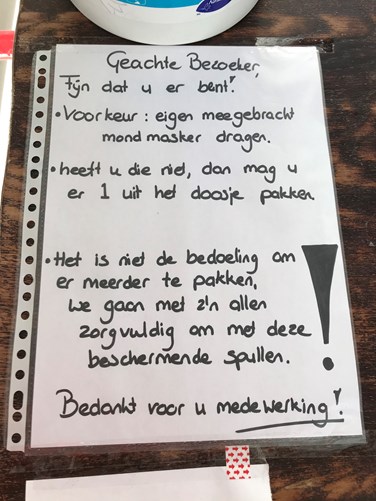 Geachte Bezoeker,
Fijn dat u er bent!
• Voorkeur : eigen meegebracht
mond masker dragen.
• heeft u die niet, dan mag u
er 1 uit het doosje pakken.
• Het is niet de bedoeling om
er meerder te pakken,
we gaan met z'n allen
zorgvuldig om met deze
beschermende spullen.
!
Bedankt voor u medewerking!